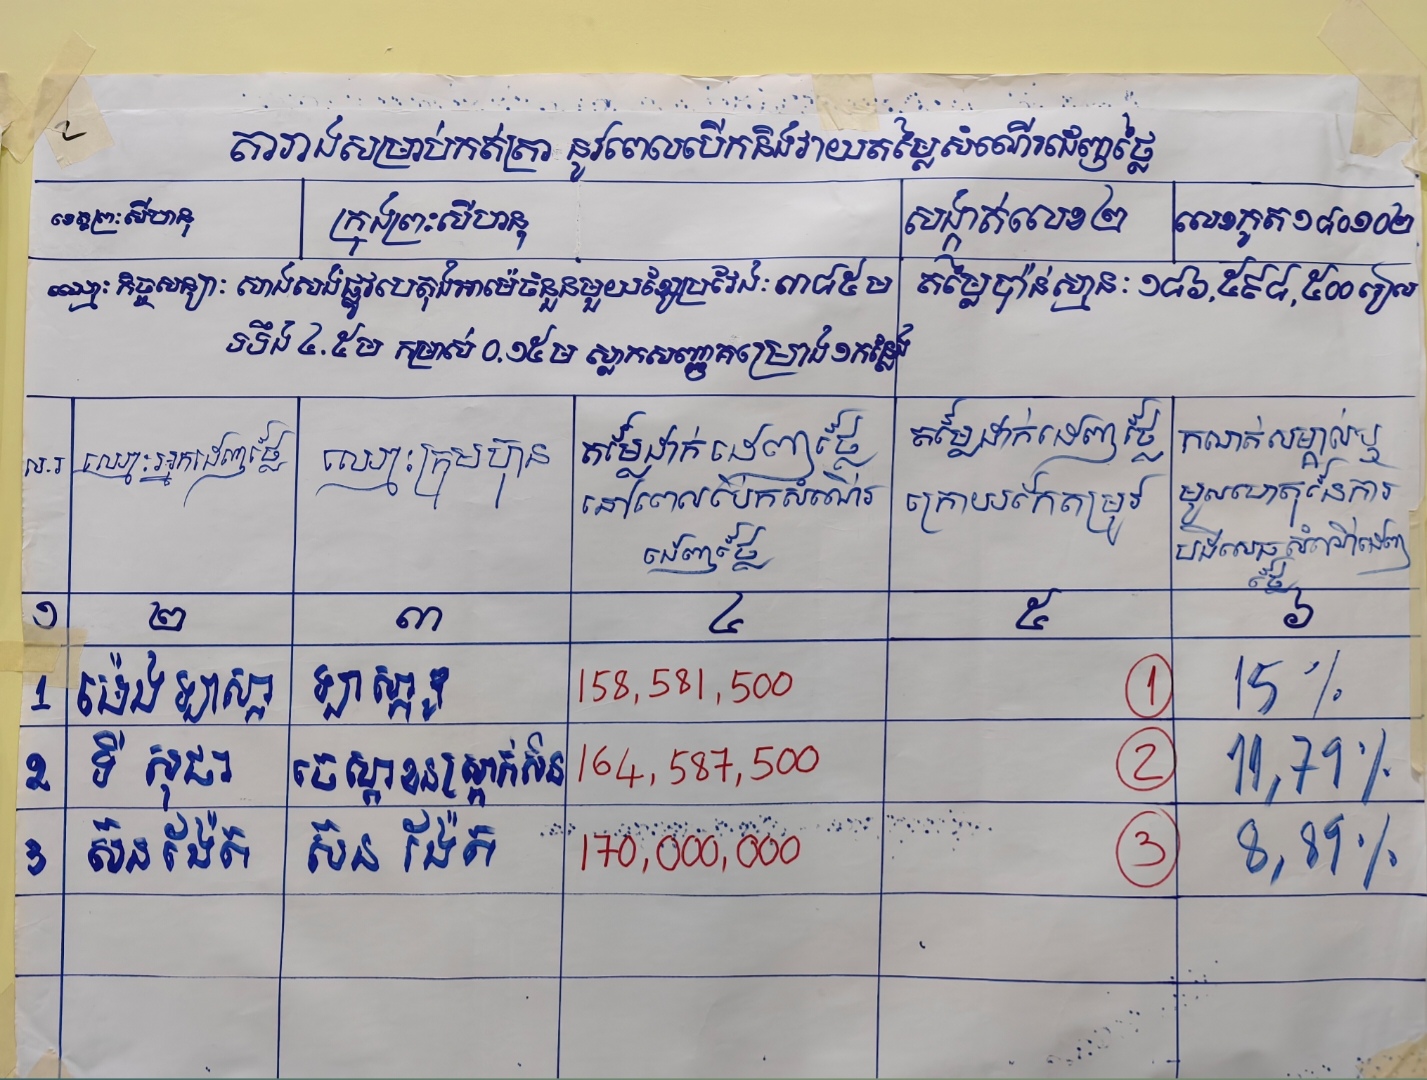 តារាងសម្រាប់កត់ត្រា នូវពេលបើកនិងវាយតម្លៃសំណើរដេញថ្លៃ
ខេត្តព្រះសីហនុ
ក្រុងព្រះសីហនុ
សង្កាត់លេខ២
លេខកូត ១៨០១០២
ឈ្មោះកិច្ចសន្យា: សាងសង់ផ្លូវបេតុងអាម៉េចំនួនមួយខ្សែប្រវែង: ៣៨៥ម
តម្លៃប៉ាន់ស្មាន: ១៨៦,៥៩៨,៥០០ រៀល
ទទឹង ៤.៥ម កម្រាស់ 0.១៥ម ស្លាកសញ្ញាគម្រោង១កន្លែង
ល.រ
ឈ្មោះអ្នកដេញថ្លៃ
ឈ្មោះក្រុមហ៊ុន
តម្លៃដាក់ដេញថ្លៃ
នៅពេលបើកសំណើរ
ដេញថ្លៃ
តម្លៃដាក់ដេញថ្លៃ
ក្រោយកែតម្រូវ
កំណត់សម្គាល់ឬ
មូលហេតុនៃការ
បដិសេធសំណើដេញ
ថ្លៃ
១ ២ ៣ ៤ ៥ ៦
1 ម៉េង ឡាស្កា 158,581,500 1 15 %
2 ទី សុជា 164,587,500 2 11,79 %
3 ស៊ន ង៉ែត ស៊ន ង៉ែត 170,000,000 3 8,89 %